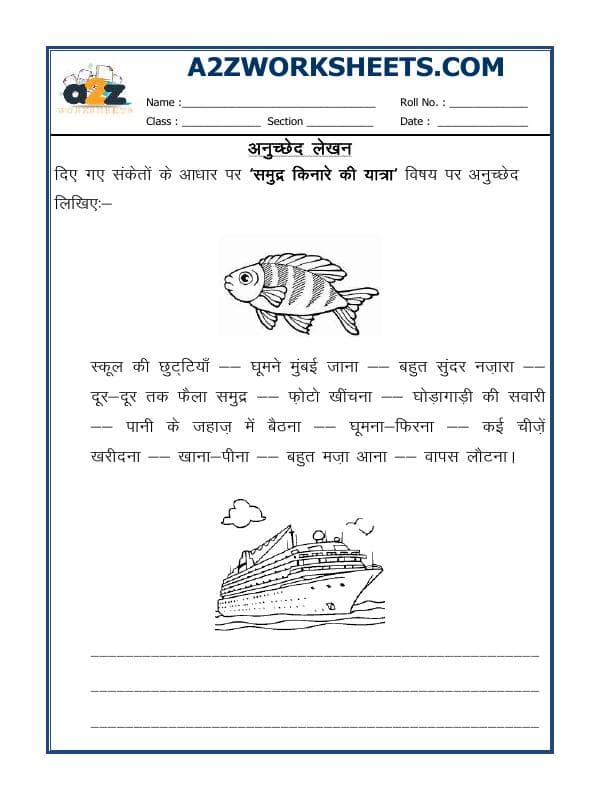 A2Z
WORKSHEETS
A2ZWORKSHEETS.COM
Name :______________________________ Roll No. : ____________
Class : ____________ Section __________ Date : ______________
अनुच्छेद लेखन
दिए गए संकेतों के आधार पर 'समुद्र किनारे की यात्रा' विषय पर अनुच्छेद
लिखिए:–
स्कूल की छुट्टियाँ –– घूमने मुंबई जाना –– बहुत सुंदर नज़ारा ––
दूर–दूर तक फैला समुद्र –– फ़ोटो खींचना –– घोड़ागाड़ी की सवारी
–– पानी के जहाज़ में बैठना –– घूमना–फिरना –– कई चीज़ें
खरीदना –– खाना–पीना –– बहुत मज़ा आना –– वापस लौटना।